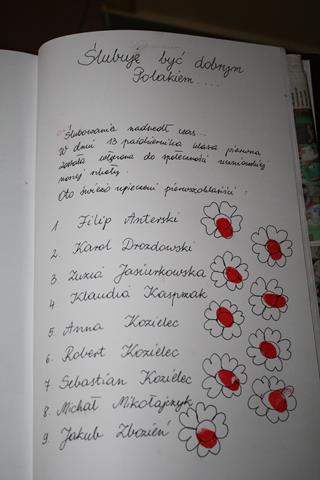 Ślubuję być dobrym
Polakiem....
Ślubowania nadszedł czas...
W dniu 13 października klasa pierwsza
została włączona do społeczności uczniowskiej
naszej szkoły.
Oto świeżo upieczeni pierwszoklasiści:
1. Filip Anterski
2. Karol Drozdowski
3. Zuzia Jasiurkowska
4. Klaudia Kasprzak
5. Anna Kozielec
6. Robert Kozielec
7. Sebastian Kozielec
8. Michał Mikołajczyk
9. Jakub Zbozień